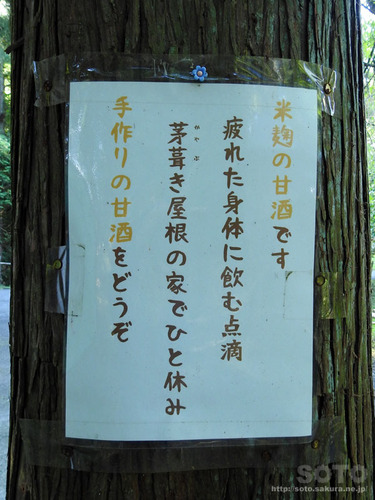 米麹の甘酒です
疲れた身体に飲む点滴
茅葺き屋根の家でひと休み
かやぶ
手作りの甘酒をどうぞ
SOTO
http://soto.sakura.ne.jp/